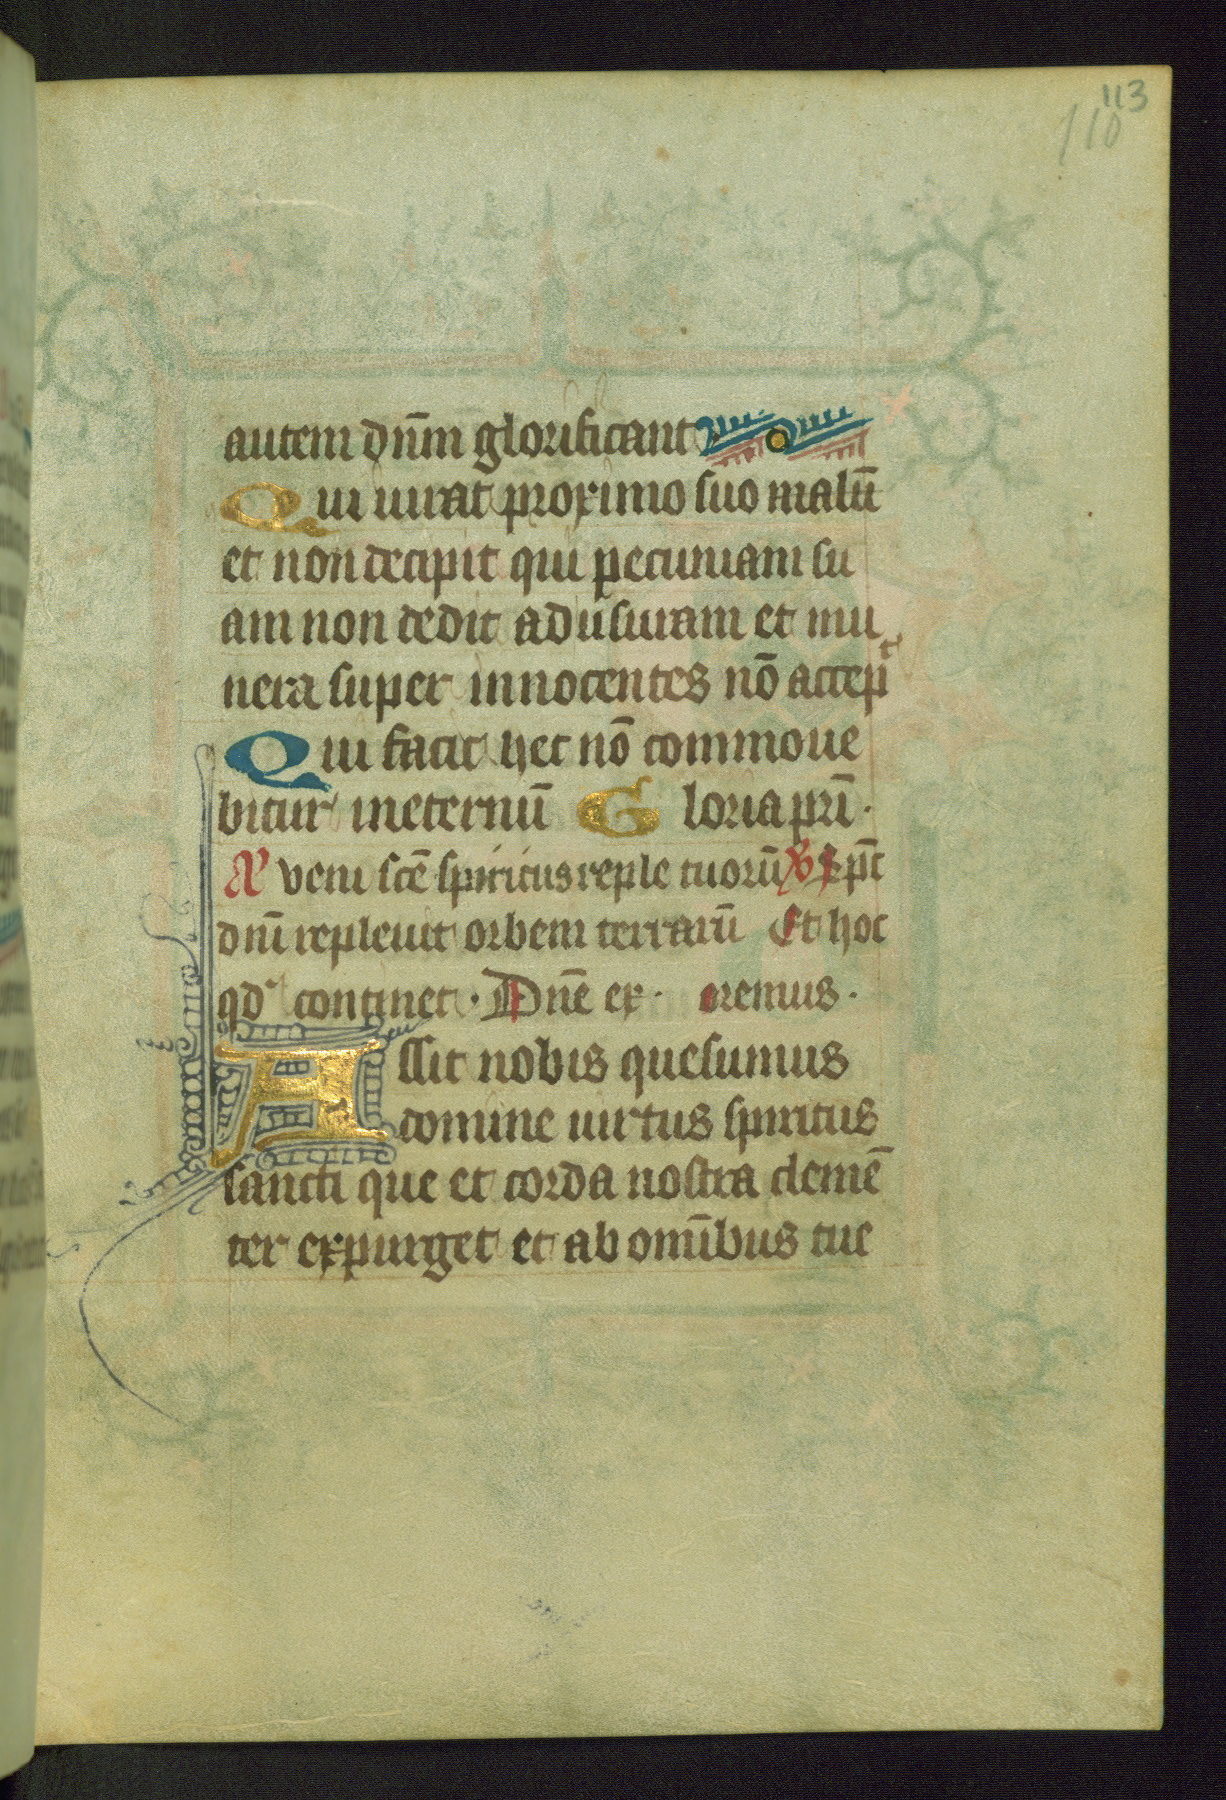 113
110
autem dn̄m glorificant
Qui iurat proximo suo malū
et non decipit qui pecuniam su
am non dedit ad usuram et mu
nera super innocentes nō accep͛t
Qui facit hec nō commoue
bitur in eternū Gloria pr̄i ·
An̄ veni scē spiritus reple tuorū V̄ Sp̄c
dn̄i repleuit orbem terrarū Et hoc
qd' continet · Dn̄e ex · oremus ·
Assit nobis quesumus
domine uirtus spiritus
sancti que et corda nostra clemē
ter expurget et ab om̄ibus tue